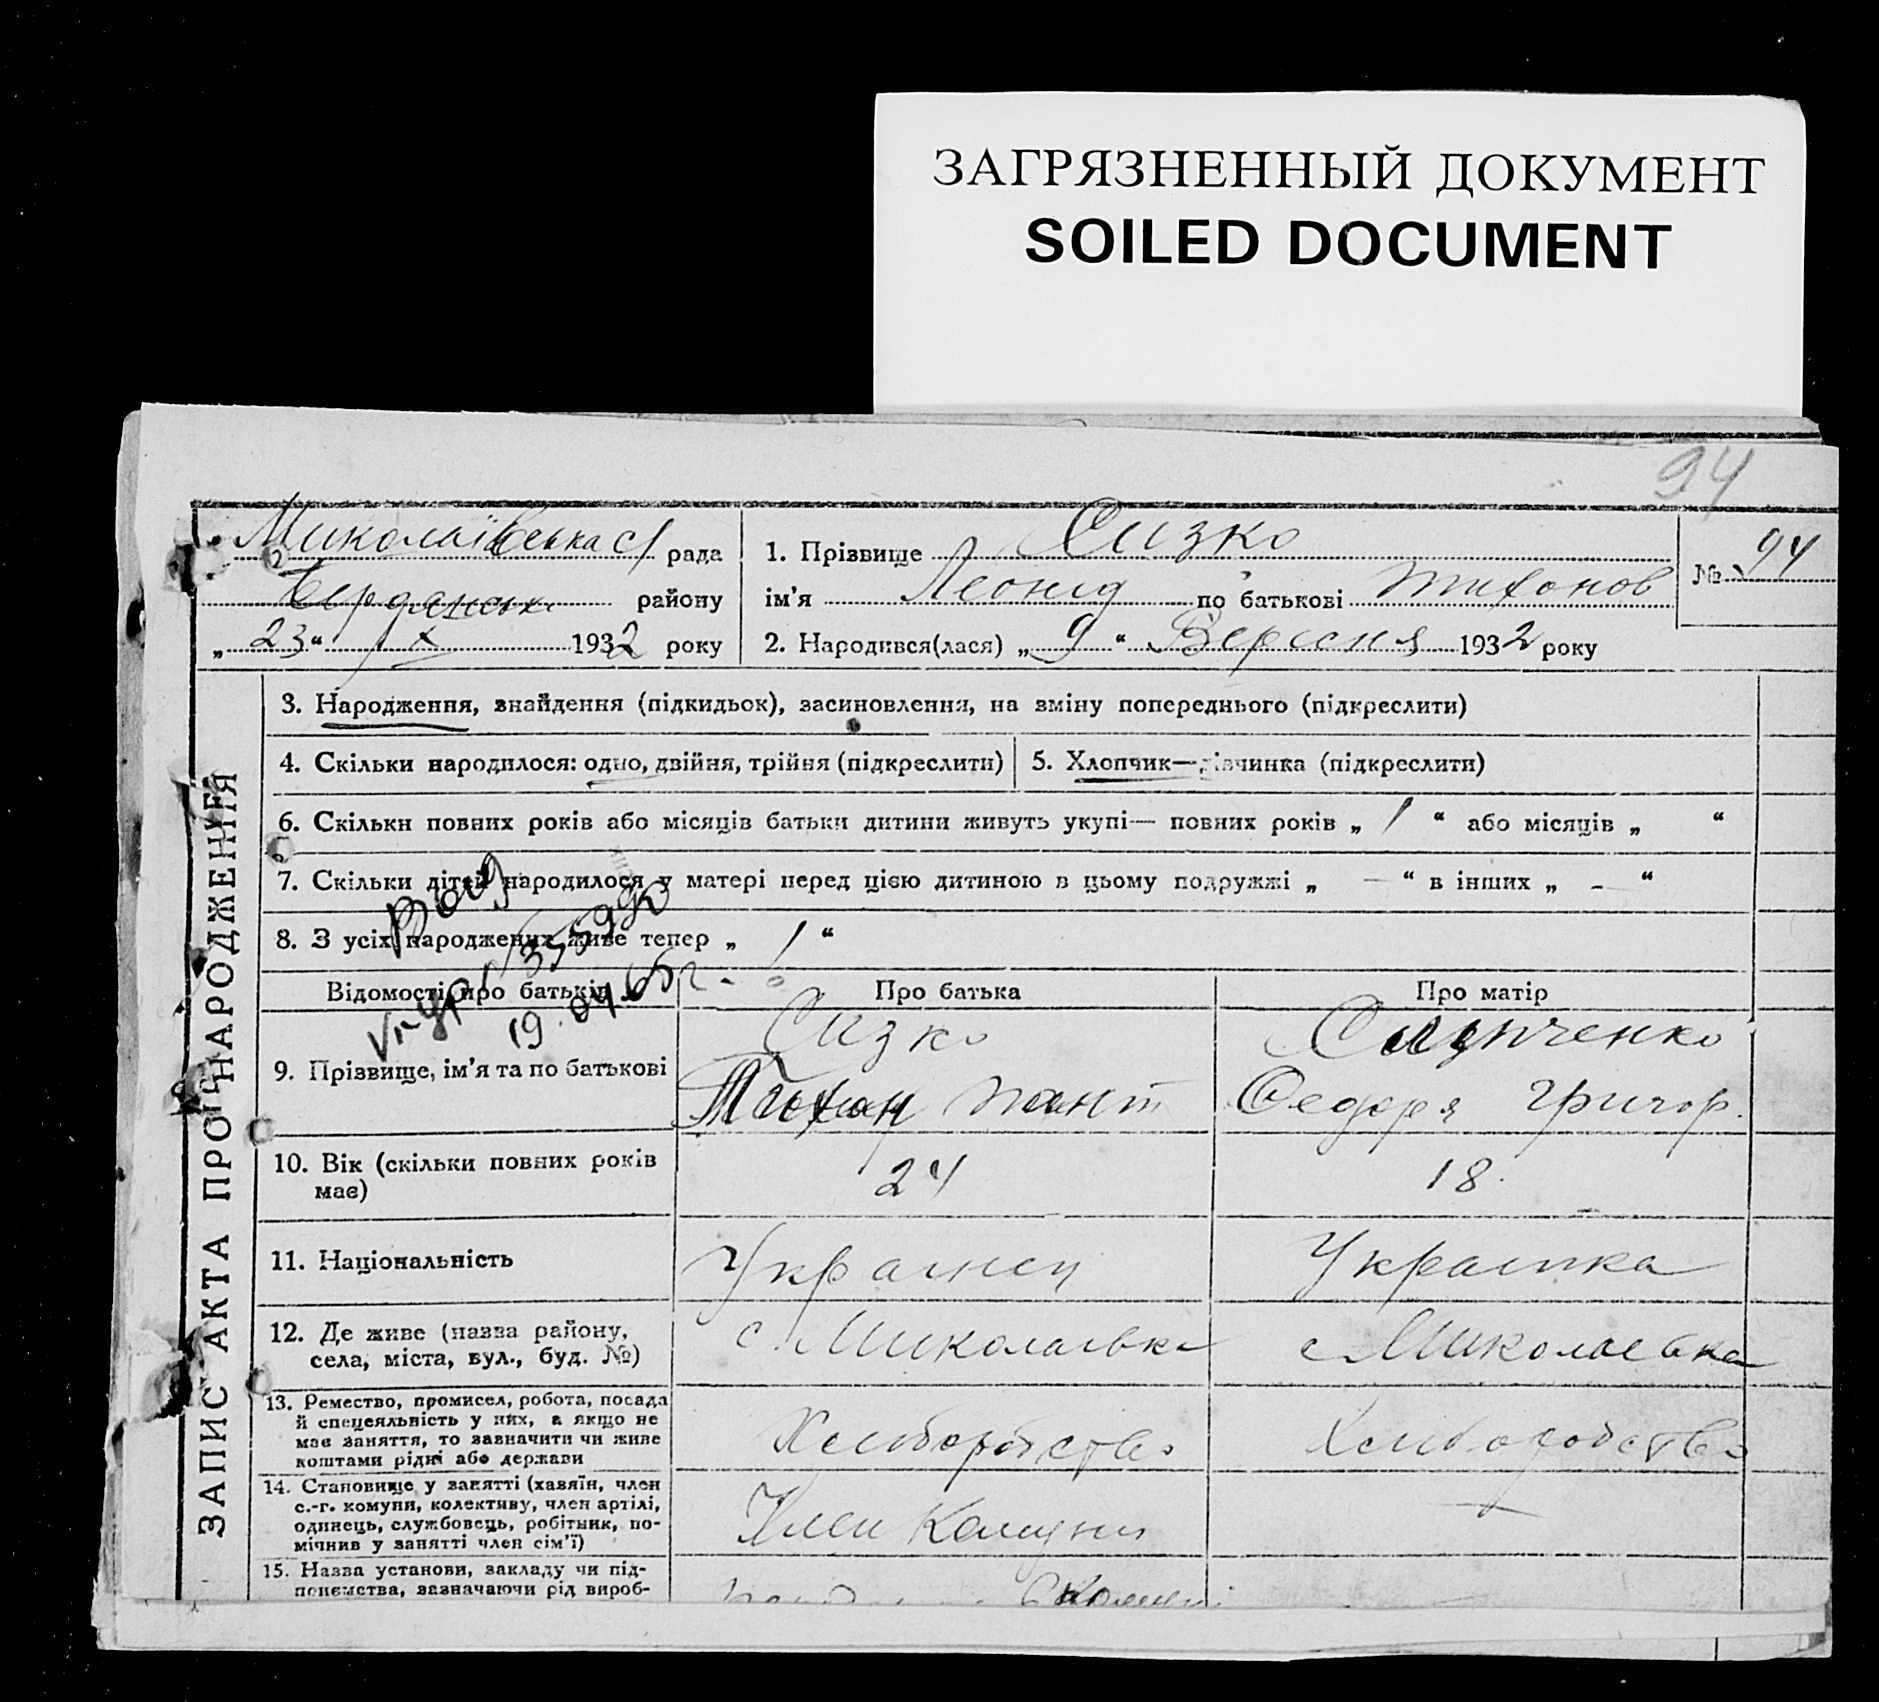 ЗАГРЯЗНЕННЫЙ ДОКУМЕНТ
SOILED DOCUMENT
94
Миколаївська с/ рада
Бердянськ району
„ 23 “ ІХ 1932 року
1. Прізвище Сизко
ім'я Леонід по батькові Тихонов
2. Народився(лася) „ 9 “ Вересня 1932 року
№ 94
ЗАПИС АКТА ПРО НАРОДЖЕННЯ
3. Народження, знайдення (підкидьок), засиновлення, на зміну попереднього (підкреслити)
4. Скільки народилося: одно, двійня, трійня (підкреслити)
5. Хлопчик—дівчинка (підкреслити)
6. Скільки повних років або місяців батьки дитини живуть укупі— повних років „ 1 “ або місяців „ “
7. Скільки дітей народилося у матері перед цією дитиною в цьому подружжі „ — “ в інших „ — “
8. З усіх народжених живе тепер „ 1 “
19.04.65 г.
Відомості про батьків
Про батька
Про матір
9. Прізвище, ім'я та по батькові
Сизко
Тихон
Федора Григор.
10. Вік (скільки повних років
має)
24
18.
11. Національність
Українец
Українка
12. Де живе (назва району,
села, міста, вул., буд. №)
с. Миколаївка
с Миколаевка
13. Ремество, промисел, робота, посада
й спецеяльність у них, а якщо не
має заняття, то зазначити чи живе
коштами рідні або держави
Хлиборобство
Хлиборобство
14. Становище у занятті (хазяїн, член
с.-г. комуни, колективу, член артілі,
одинець, службовець, робітник, по-
мічнив у занятті член сім'ї)
Член Комуни
—
15. Назва установи, закладу чи під-
приємства, зазначаючи рід вироб-